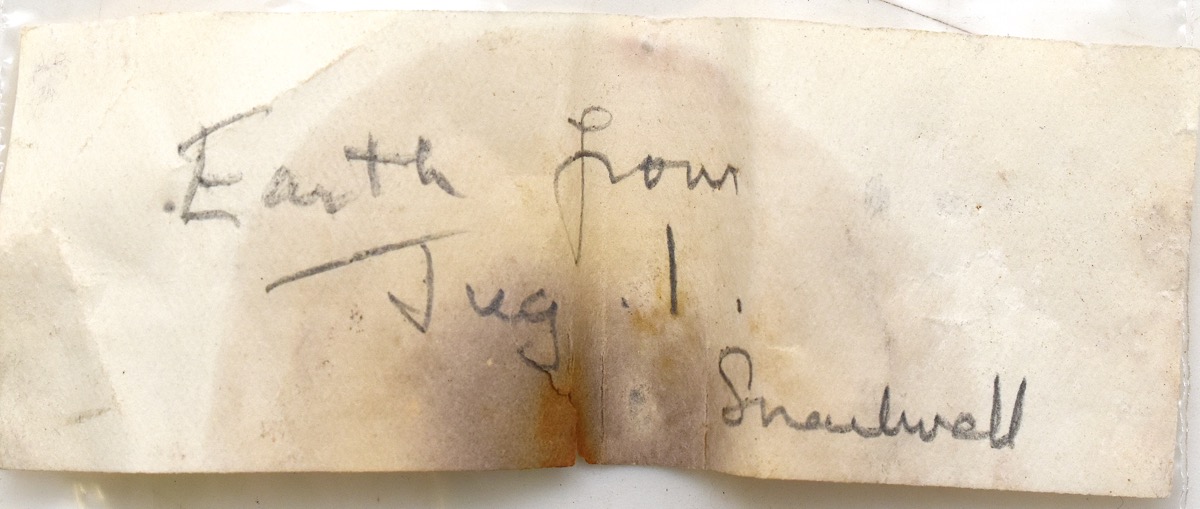 Earth from
Jug . 1 .
Snailwell